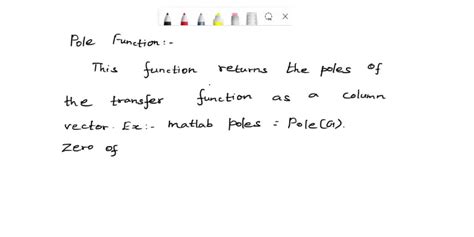 Pole Function:-
This function returns the poles of
the transfer function as a column
vector. Ex:- matlab poles = Pole(G).
Zero of